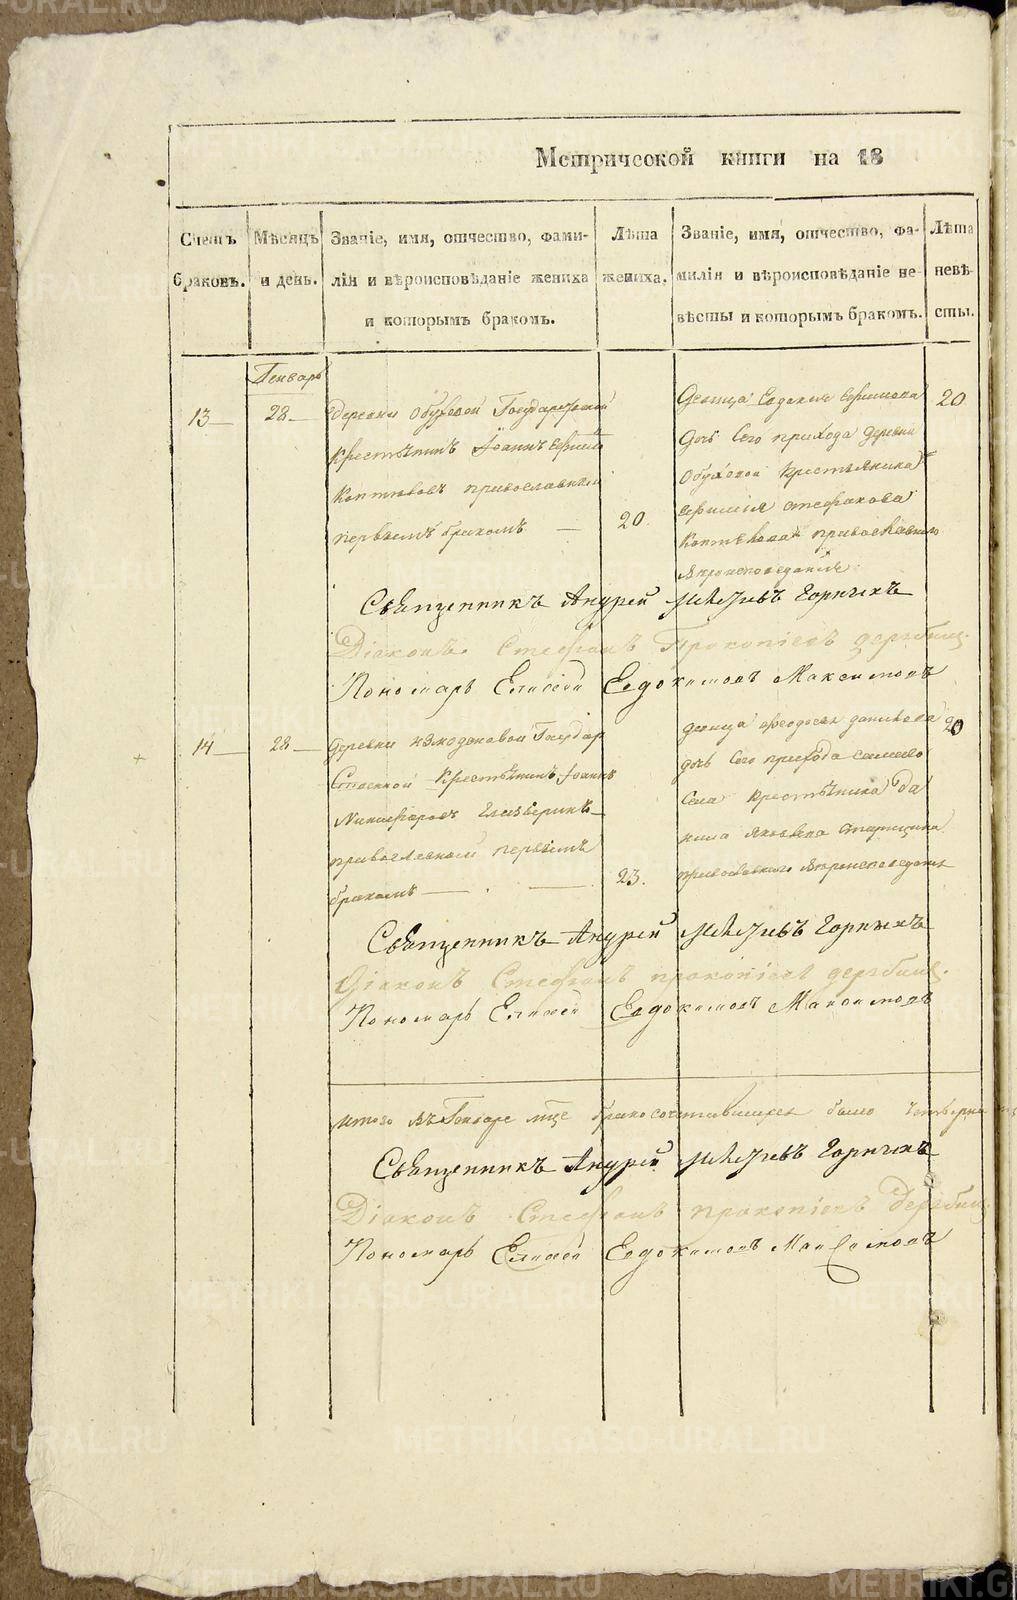 Метрической книги на 18
Счетъ браковъ.
Мѣсяцъ и день.
Званіе, имя, отчество, фами-
лія и вѣроисповѣданіе жениха
и которымъ бракомъ.
Лѣта
жениха.
Званіе, имя, отчество, фа-
милія и вѣроисповѣданіе не-
вѣсты и которымъ бракомъ.
Лѣта
невѣ-
сты.
Генварь
13 28
деревни Обуховой Государственной
Крестьянинъ Іоаннъ Ефимовъ
Коптѣловъ православный
первымъ бракомъ
20.
Девица Евдокия Ефимова
Дочь Сего прихода деревни
Обуховой Крестьянина
Ефимия Стефанова
Коптѣлова православнаго
вѣроисповедания
20
Священникъ Андрей
Діаконъ Стефанъ Прокопіевъ
Пономарь Елисей Евдокимовъ Максимовъ
14 28
Деревни Государ
ственной Крестьянинъ Іоаннъ
Никифоровъ
православный первымъ
бракомъ
23.
девица Феодосья данилова
дочь Сего прихода самаго
Села Крестьянина Да
нила Яковлева Старицина
православнаго вѣроисповедания
20
Священникъ Андрей
Діаконъ Стефанъ прокопіевъ
Пономарь Елисей Евдокимовъ Максимовъ
итого въ Генваре мце бракосочетавшихся было
Священникъ Андрей
Діаконъ Стефанъ прокопіевъ
Пономарь Елисей Евдокимовъ Максимовъ
METRIKI.GASO-URAL.RU